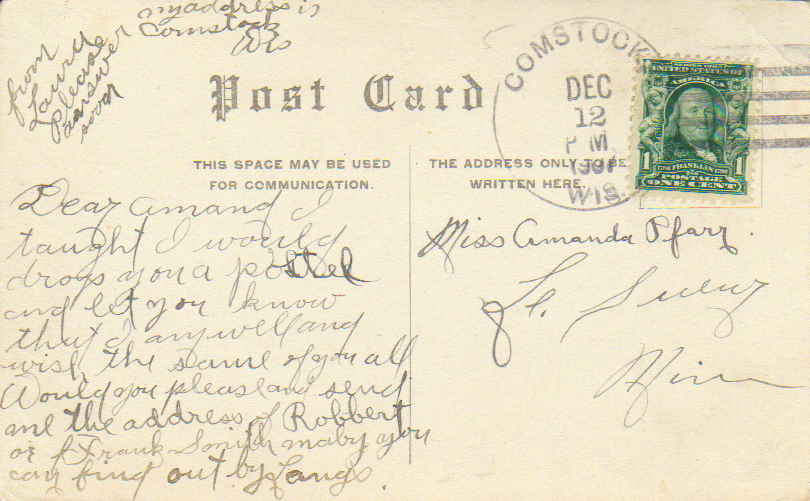 my address is
Comstock
Wis
from
Laura
Please
answer
soon
Post Card
THIS SPACE MAY BE USED
FOR COMMUNICATION.
THE ADDRESS ONLY TO BE
WRITTEN HERE.
COMSTOCK
DEC
12
P M
WIS.
UNITED STATES OF
AMERICA
1 FRANKLIN 1
POSTAGE
ONE CENT
Dear Amand I
taught I would
drop you a postel
and let you know
that I am well and
wish the same of you all
Would you please and send
me the address of Robbert
or f Frank Smith maby you
can find out by Langs.
Miss Amanda Pfarr.
Le Sueur
Minn